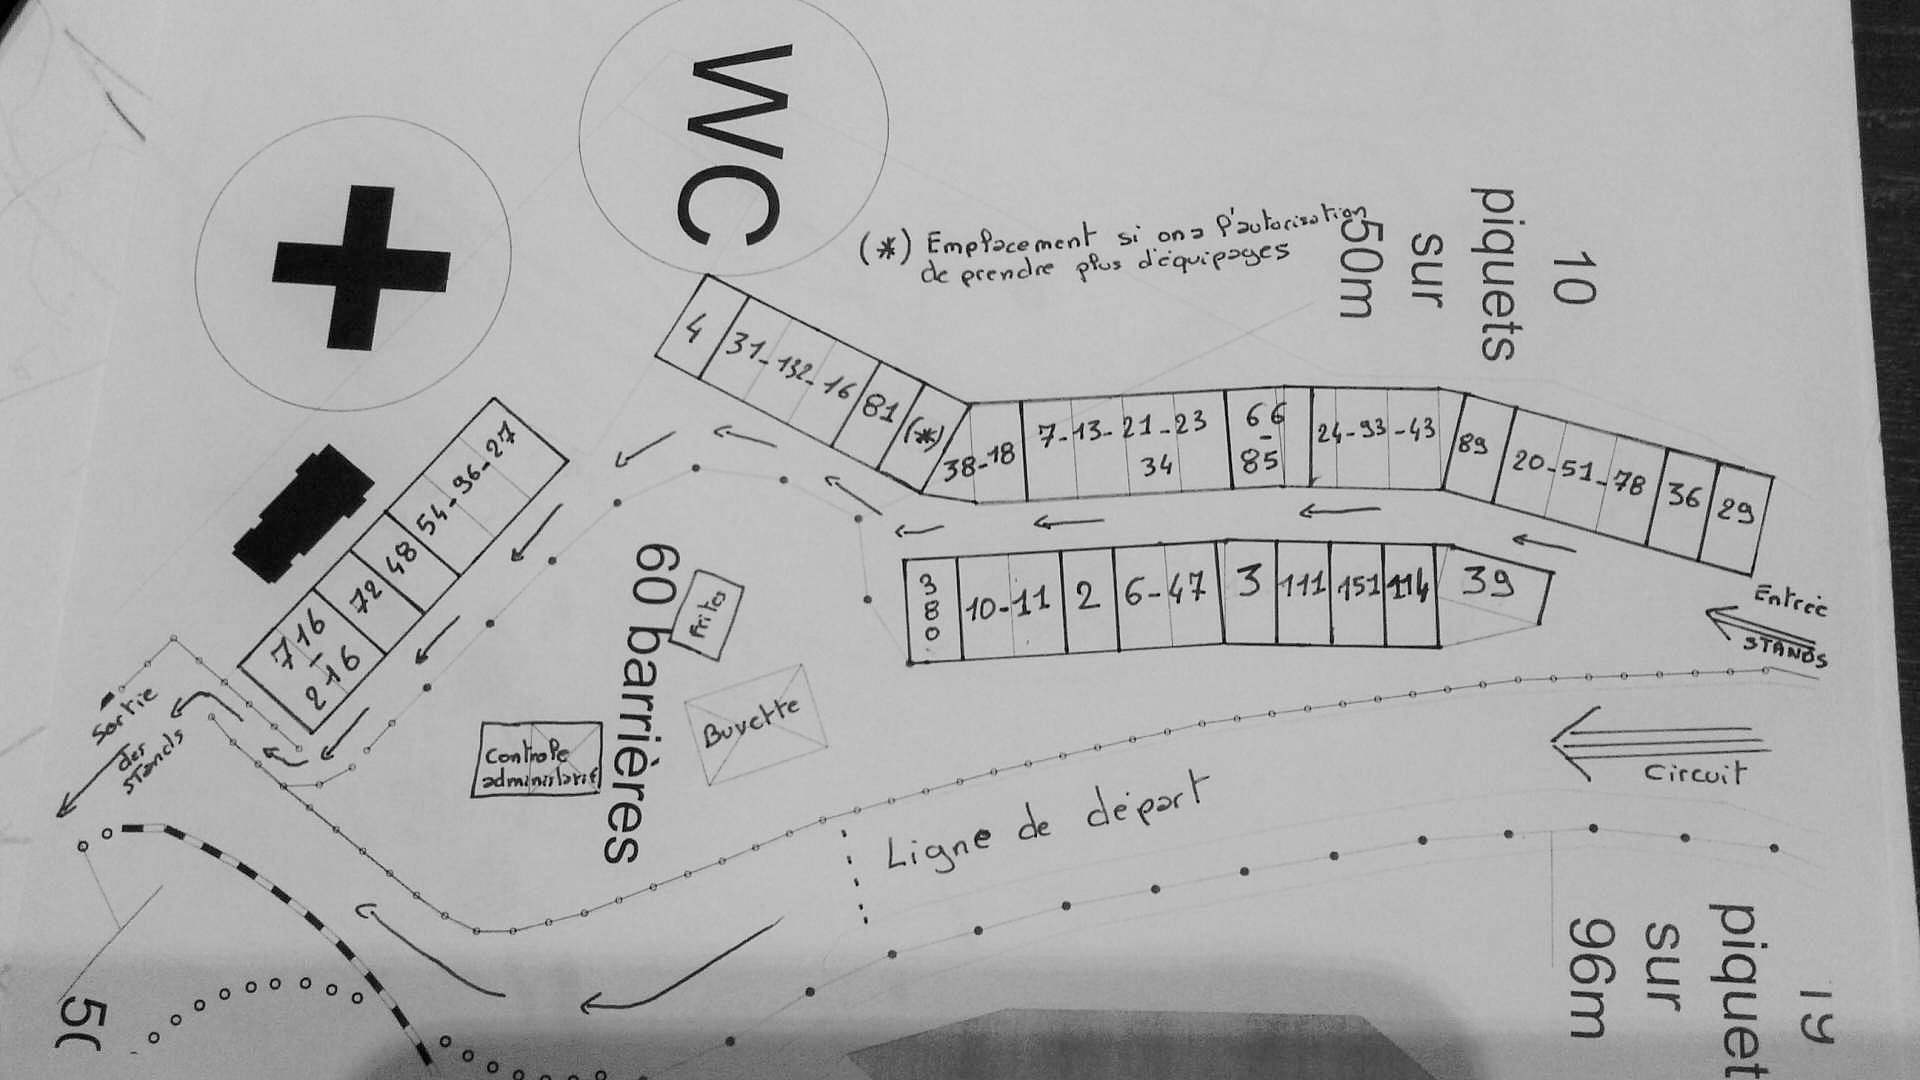 WC
(*) Emplacement si on a l'autorisation
de prendre plus d'équipages
10
piquets
sur
50m
4
31-132-16
81
(*)
38-18
7-13-21-23
34
66
-
85
24-93-43
89
20-51-78
36
29
54-96-27
48
72
716
-
216
380
10-11
2
6-47
3
111
151
114
39
Entrée
STANDS
60 barrières
Frites
Buvette
Controle
administratif
Sortie
des
stands
Circuit
Ligne de départ
19
piquet
sur
96m
5(